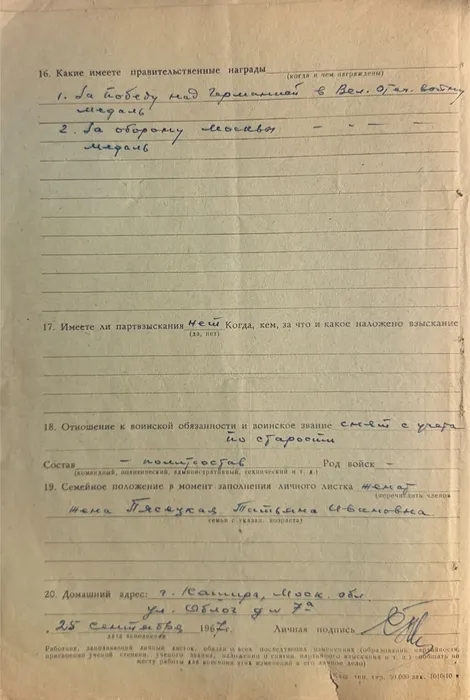 16. Какие имеете правительственные награды
(когда и чем награждены)
1. За победу над Германией в Вел. Отеч. войну
медаль
2. За оборону Москвы — — — —
медаль
17. Имеете ли партвзыскания нет Когда, кем, за что и какое наложено взыскание
(да, нет)
18. Отношение к воинской обязанности и воинское звание снят с учета
по старости
Состав — политсостав Род войск —
(командный, политический, административный, технический и т. д.)
19. Семейное положение в момент заполнения личного листка женат
(перечислить членов
жена Пясецкая Татьяна Ивановна
семьи с указан. возраста)
20. Домашний адрес: г. Кашира, Моск. обл.
ул. д № 7а
25 сентября 1967г. Личная подпись
дата заполнения
Работник, заполняющий личный листок, обязан о всех последующих изменениях (образовании, партийности,
присвоении ученой степени, ученого звания, наложении и снятии партийного взыскания и т. д.) сообщать по
месту работы для внесения этих изменений в его личное дело)
тип. тир. 50.000 зак. 1010